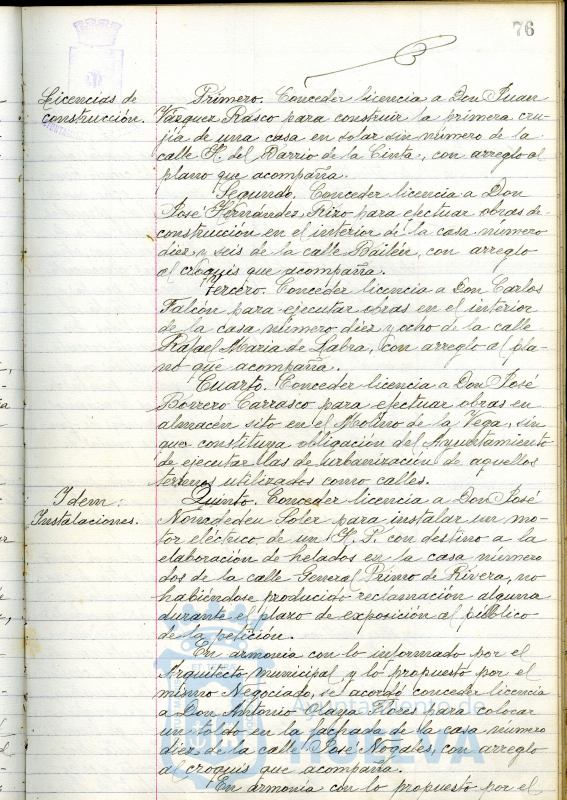 76
Licencias de
construcción.
Primero. Conceder licencia a Don Juan
Vázquez Rasco para construir la primera cru-
jía de una casa en solar sin número de la
calle H. del Barrio de la Cinta, con arreglo al
plano que acompaña.
Segundo. Conceder licencia a Don
José Fernández Rizo para efectuar obras de
construcción en el interior de la casa numero
diez y seis de la calle Bailén, con arreglo
al croquis que acompaña.
Tercero. Conceder licencia a Don Carlos
Falcón para ejecutar obras en el interior
de la casa número diez y ocho de la calle
Rafael Maria de Labra, con arreglo al pla-
no que acompaña.
Cuarto. Conceder licencia a Don José
Borrero Carrasco para efectuar obras en
almacén sito en el Molino de la Vega, sin
que constituya obligación del Ayuntamiento
de ejecutar llas de urbanización de aquellos
terrenos utilizados como calles.
Idem:
Instalaciones.
Quinto. Conceder licencia a Don José
Noncdedeu Soler para instalar un mo-
tor eléctrico de un H. P. con destino a la
elaboración de helados en la casa número
dos de la calle General Primo de Rivera, no
habiéndose producido reclamación alguna
durante el plazo de exposición al público
de la petición.
En armonia con lo informado por el
Arquitecto municipal y lo propuesto por el
mismo Negociado, se acordó conceder licencia
a Don Antonio Olaya Flores para colocar
un toldo en la fachada de la casa número
diez de la calle José Nogales, con arreglo
al croquis que acompaña.
En armonia con lo propuesto por el
Ayuntamiento de
HUELVA